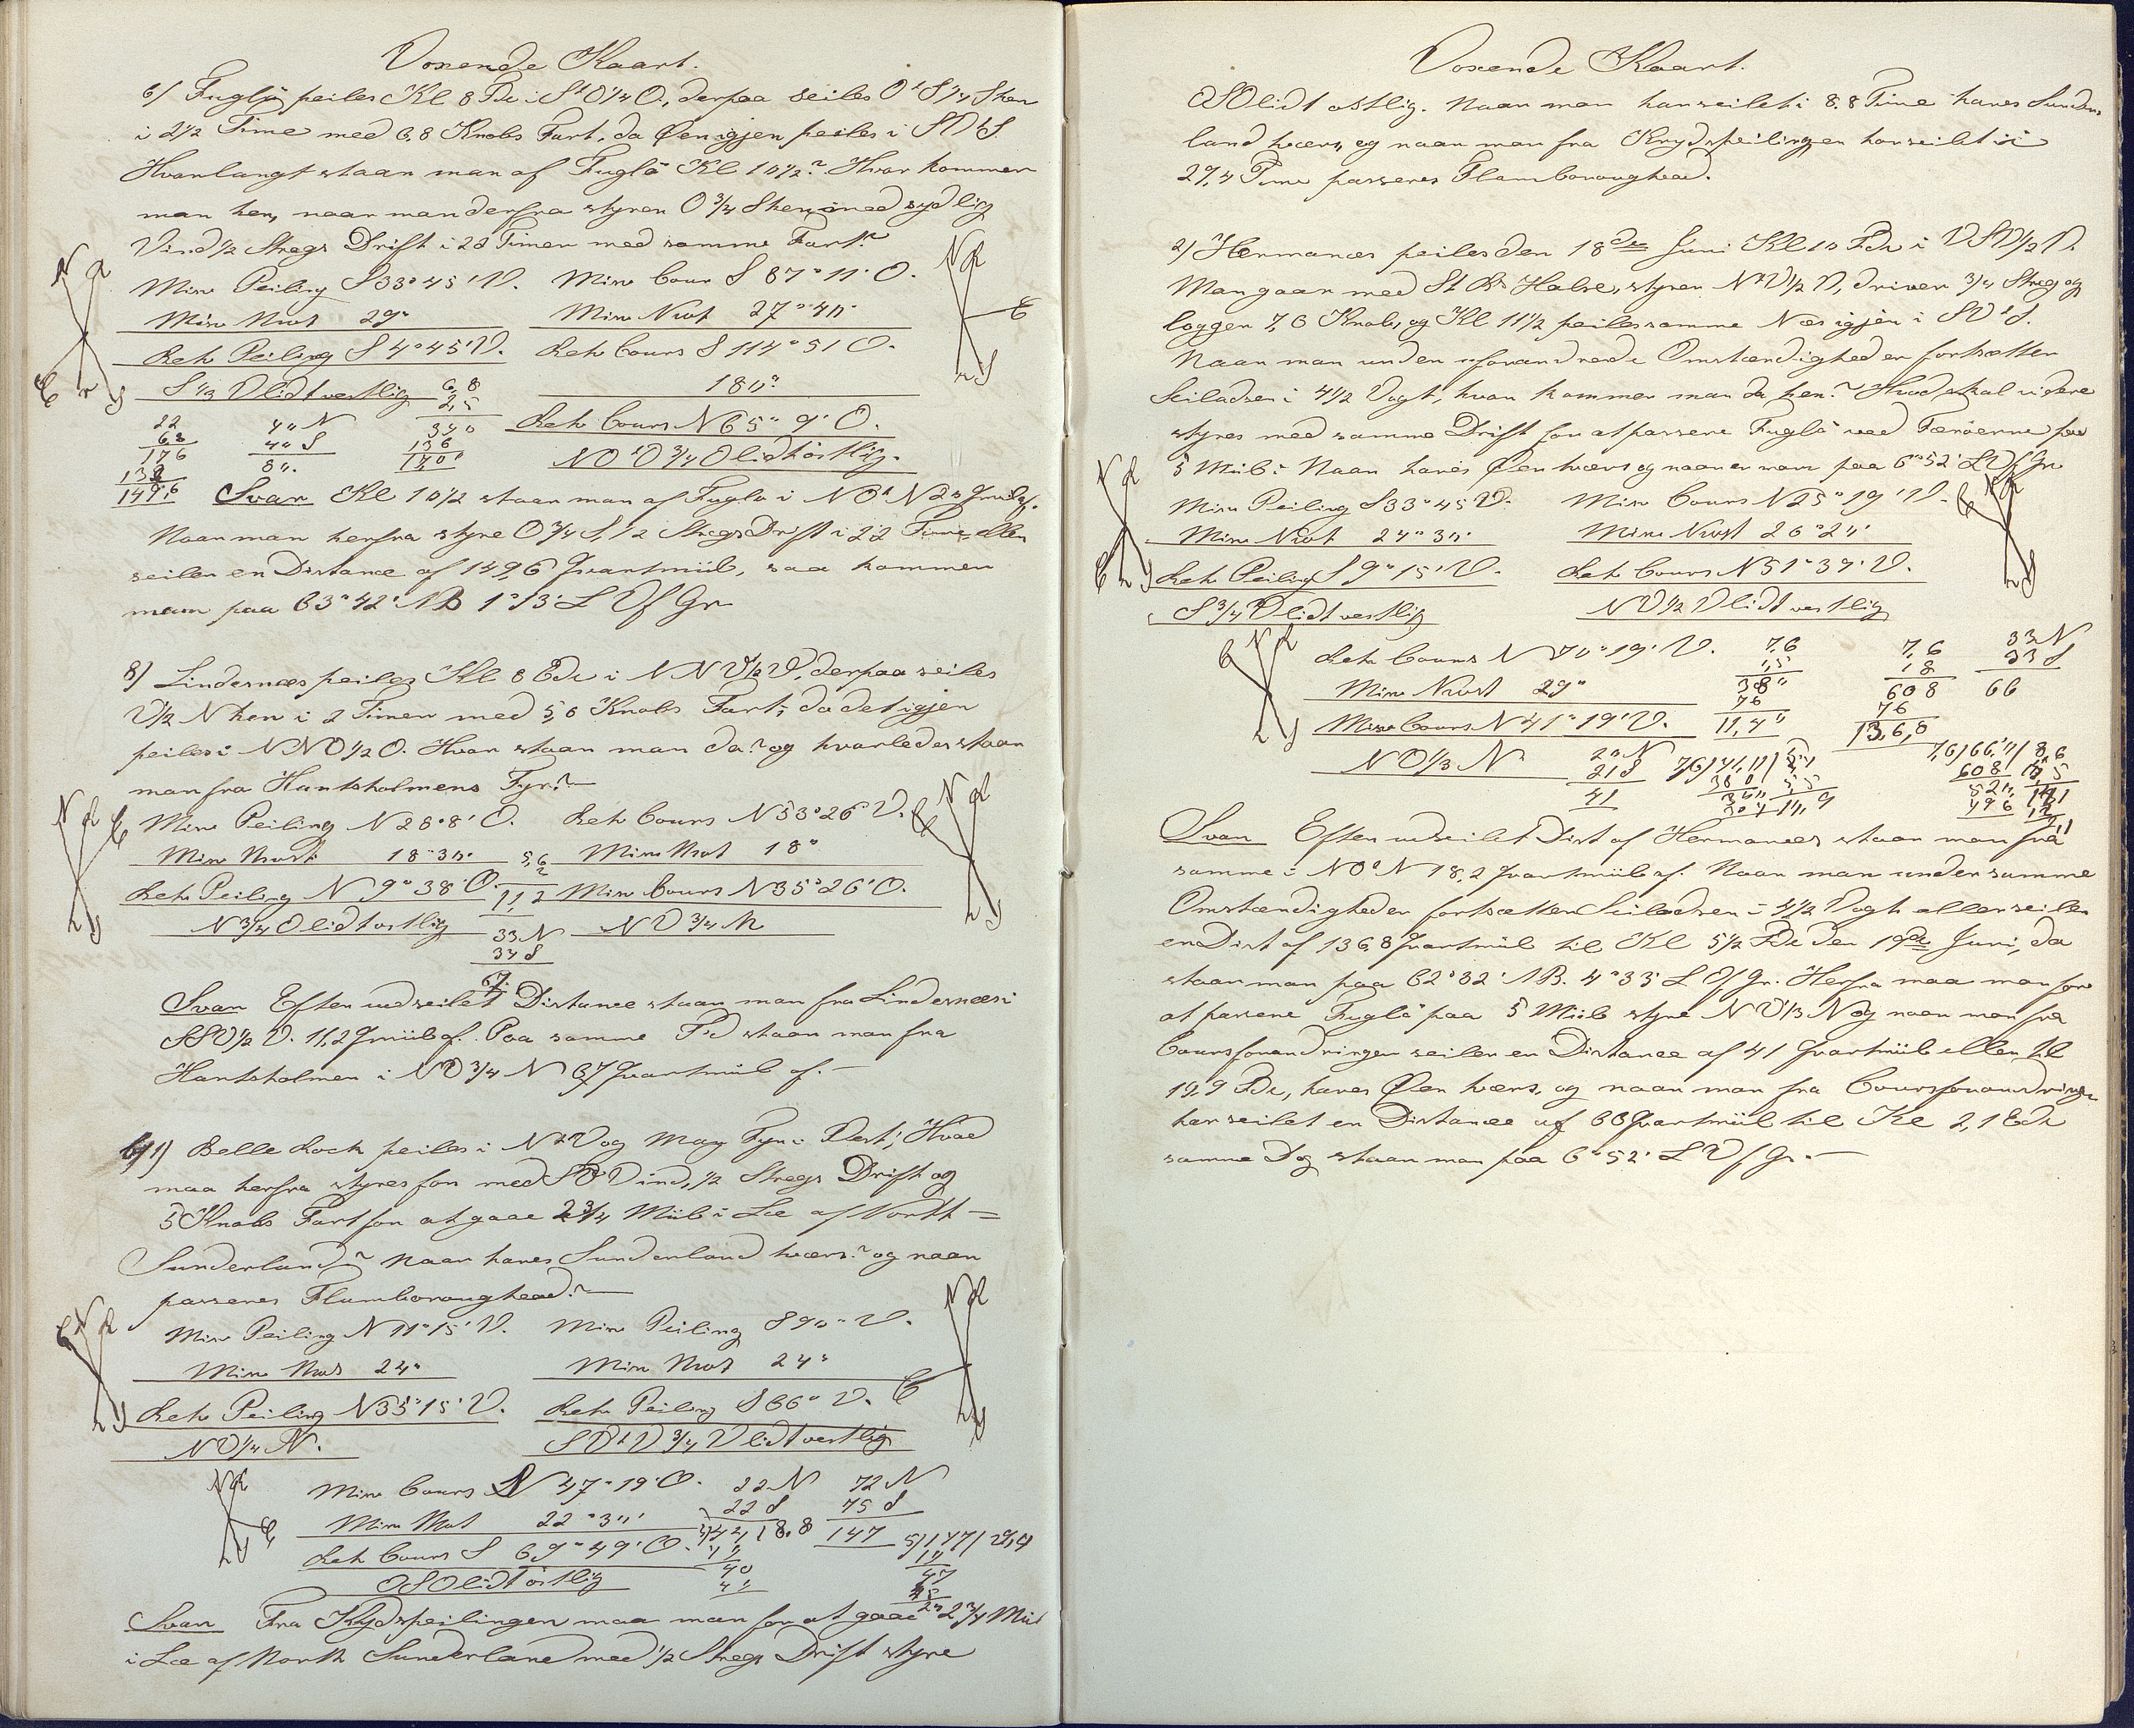 Voxende Kaart.
6/ Fuglø peiles Kl 8 Fd i StO¼O, derpaa seiles OtS¼S hen
i 2½ Time med 6,8 Knobs Fart, da Øen igjen peiles i SVtS.
Hvorlangt staar man af Fuglö Kl 10½? Hvor kommer
man hen, naar man derfra styrer O¾S hen med sydlig
Vind ½ Stregs Drift i 22 Timer med samme Fart?
Misv Peiling S33°45'V. Misv Cours S 87°11'O.
Misv Nvst 29° Misv Nvst 27°40'
Retv Peiling S4°45'V. Retv Cours S 114°51'O.
S⅓V lidt vestlig 6,8 180°
2,5
22 40 N 340 Retv Cours N65°9'O.
68 40 S 136
176 80. 17,00 NOtO¾O lidt östlig.
132
149,6 Svar Kl 10½ staar man af Fuglö i NOtN 20 Qmiil af.
Naar man herfra styre O¾S, ½ Stregs Drift i 22 Time eller
seiler en Distance af 149,6 Qvartmiil, saa kommer
man paa 63°42' NB 1°13' L Vf Gr
8/ Lindesnæs peiles Kl 8 Edv i NNV½V, derpaa seiles
V½N hen i 2 Timer med 5,6 Knobs Fart, da det igjen
peiles i NNO½O. Hvor staar man da? og hvorledes staar
man fra Hantsholmens Fyr?
Misv Peiling N28°8'O. Retv Cours N53°26'V.
Misv Nvst 18°30' 5,6 Misv Nvst 18°
2
Retv Peiling N9°38'O. 11,2 Misv Cours N35°26'O.
N¾O lidt östlig 33 N NV¾N
34 S
67.
Svar Efter udseilet Distance staar man fra Lindesnæs i
SSV½V. 11,2 Qmiil af. Paa samme Tid staar man fra
Hantsholmen i NV¾N 67 Qvartmiil af.
1) Belle Rock peiles i NtV og May Fyr i Vest; Hvad
maa herfra styres for med SV Vind, ½ Stregs Drift og
5 Knobs Fart for at gaae 2¾ Miil i Læ af North
Sunderland? Naar haves Sunderland tværs? og naar
passeres Flamboroughead?
Misv Peiling N11°15'V. Misv Peiling S90°V.
Misv Nvst 24° Misv Nvst 24°
Retv Peiling N35°15'V. Retv Peiling S66°V.
NV¼N. SVtV¾V lidt vestlig
Misv Cours N 47°19'O. 22 N 72 N
22 S 75 S
Misv Nvst 22°30' 5/44/8,8 147 5/147/29,4
Retv Cours S 69°49'O. 40 10
40 47
OSO lidt östlig 40 45
20
Svar Fra Krydspeilingen maa man for at gaae 2¾ Miil
i Læ af North Sunderland med ½ Stregs Drift styre
Voxende Kaart.
OSO lidt ostlig. Naar man har seilet i 8.8 Time haves Sunder
land tværs, og naar man fra Krydspeilingen har seilet i
29,4 Time passeres Flamboroughead.
2/ Hermanæs peiles den 18de Juni Kl 10 Fdv i VSV½V.
Man gaar med St Bs Halse, styrer NtV½V, driver ¾ Streg og
logger 7,6 Knob, og Kl 11½ peiles samme Næs igjen i SVtS.
Naar man under uforandrede Omstændigheder fortsætter
Seiladsen i 4½ Vagt, hvor kommer man da hen? Hvad skal videre
styres med samme Drift for at passere Fuglö ved Færöerne paa
5 Miil? Naar haves Øen tværs og naar er man paa 6°52' L Vf Gr
Misv Peiling S33°45'V. Misv Cours N25°19'V.
Misv Nvst 24°30' Misv Nvst 26°20'
Retv Peiling S9°15'V. Retv Cours N51°39'V.
S¾V lidt vestlig NV½V lidt vestlig
Retv Cours N70°19'V. 7,6 7,6 33 N
1,5 18 33 S
Misv Nvst 29° 380 608 66
76 76
Misv Cours N41°19'V. 11,40 136,8
NV⅓N 20 N
21 S
41
Svar Efter udseilet Dist af Hermanæs staar man fra
samme i NOtN 18,2 Qvartmiil af. Naar man under samme
Omstændigheder fortsætter Seiladsen i 4½ Vagt eller seiler
en Dist af 136,8 Qvartmiil til Kl 5½ Fdv den 19de Juni, da
staar man paa 62°32' NB. 4°33' L Vf Gr. Herfra maa man for
at passere Fuglö paa 5 Miil styre NV⅓N og naar man fra
Coursforandringen seiler en Distance af 41 Qvartmiil eller Kl
10,9 Fdv, haves Øen tværs, og naar man fra Coursforandringen
har seilet en Distance af 66 Qvartmiil til Kl 2,1 Edv
samme Dag staar man paa 6°52' L Vf Gr.